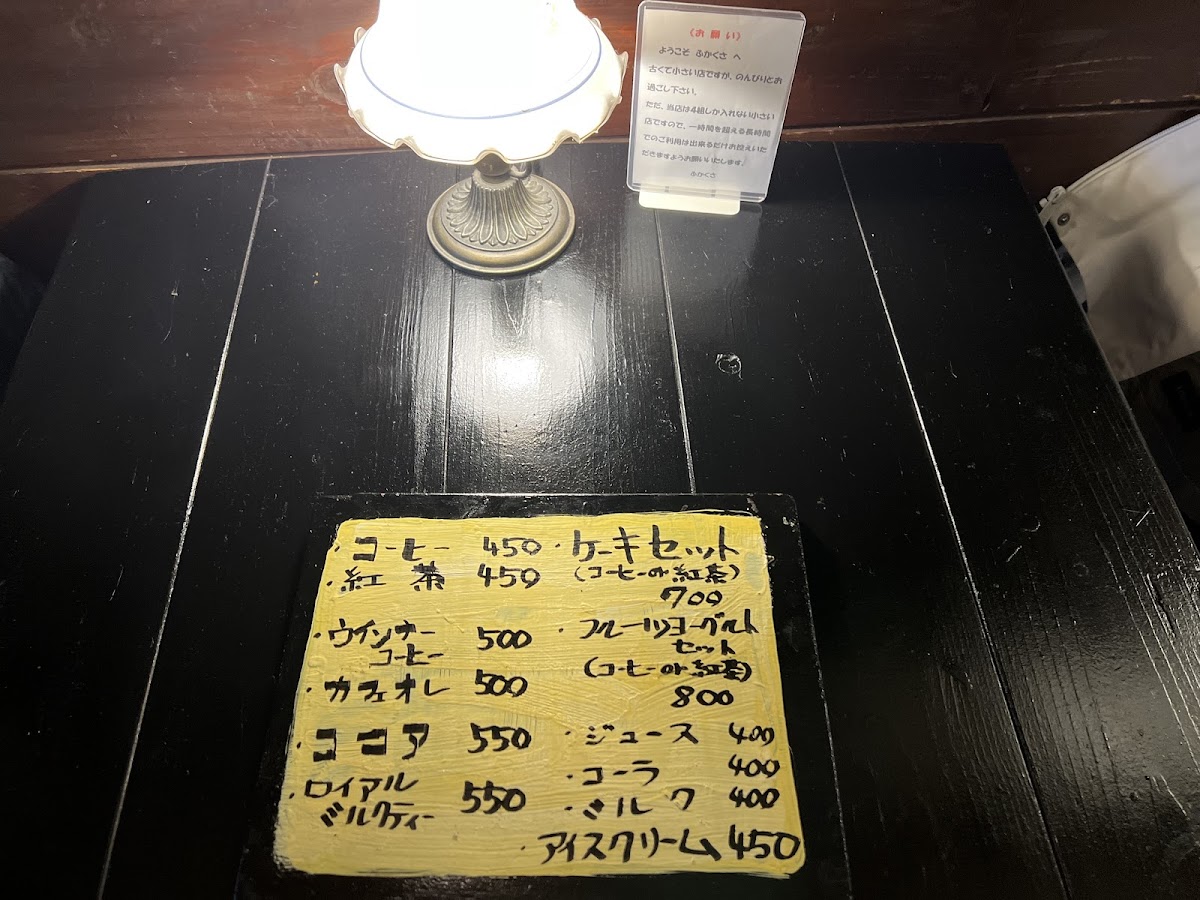 (お願い)
ようこそ ふかくさ へ
古くて小さい店ですが、のんびりとお
過ごし下さい。
ただ、当店は4組しか入れない小さい
店ですので、一時間を超える長時間
でのご利用は出来るだけお控えいた
だきますようお願いいたします。
ふかくさ
・コーヒー 450
・紅茶 450
・ウインナー
コーヒー 500
・カフェオレ 500
・ココア 550
・ロイアル
ミルクティー 550
・ケーキセット
(コーヒーor紅茶)
700
・フルーツヨーグルト
セット
(コーヒーor紅茶)
800
・ジュース 400
・コーラ 400
・ミルク 400
・アイスクリーム 450